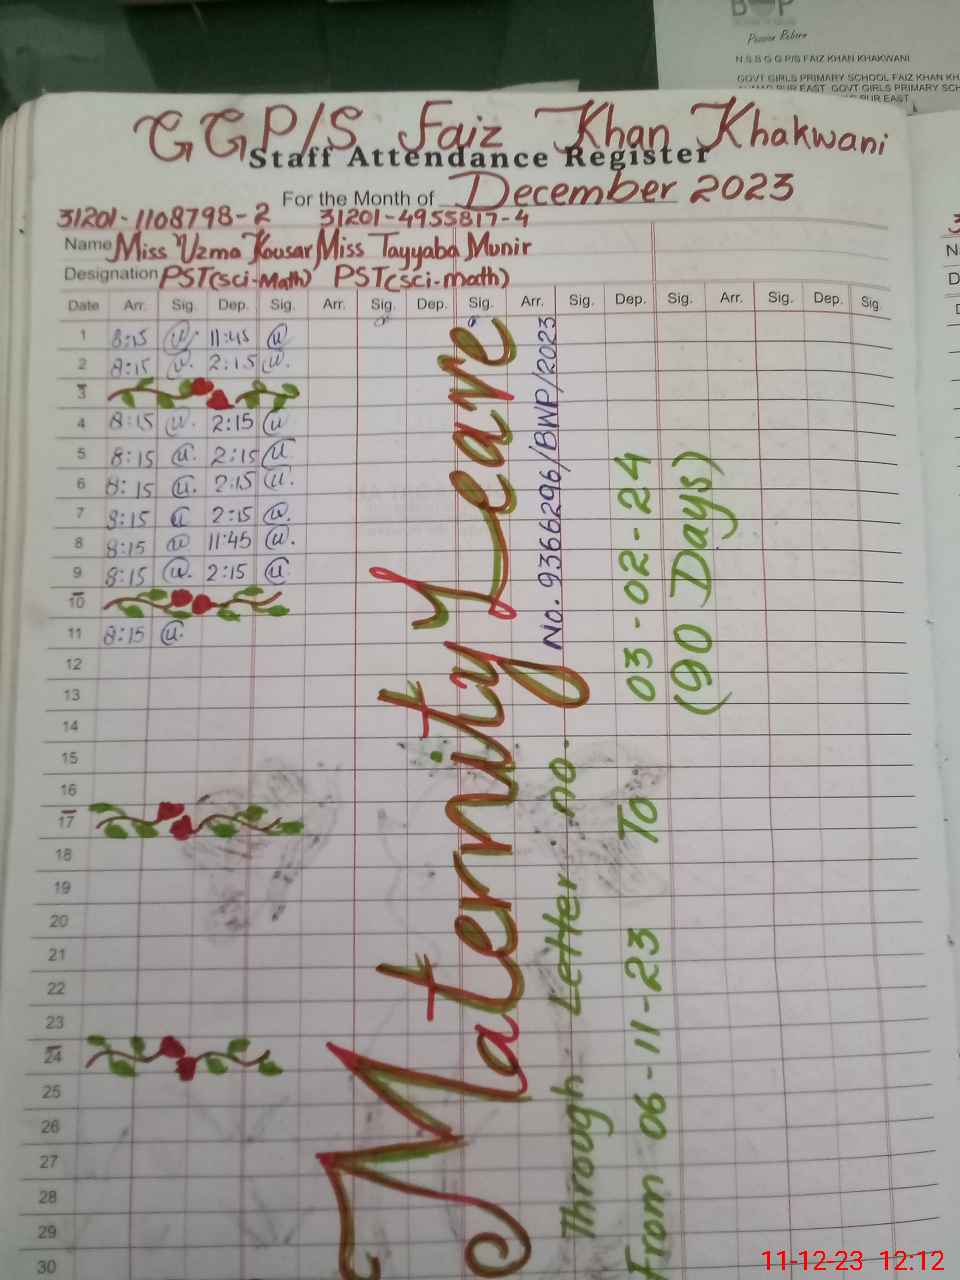 Passion Reborn
N.S.S G G P/S FAIZ KHAN KHAKWANI
GOVT GIRLS PRIMARY SCHOOL FAIZ KHAN KH
PUR EAST GOVT GIRLS PRIMARY SCH
PUR EAST
GGP/S Faiz Khan Khakwani
Staff Attendance Register
For the Month of December 2023
31201-1108798-2 31201-4955817-4
Name Miss Uzma Kousar Miss Tayyaba Munir
Designation PST(sci-Math) PST(sci-math)
Date Arr. Sig. Dep. Sig. Arr. Sig. Dep. Sig. Arr. Sig. Dep. Sig. Arr. Sig. Dep. Sig.
1 8:15 u 11:45 u
2 8:15 u. 2:15 u.
3
4 8:15 u. 2:15 u
5 8:15 u. 2:15 u
6 8:15 u. 2:15 u.
7 8:15 u 2:15 u.
8 8:15 u 11:45 u.
9 8:15 u. 2:15 u
10
11 8:15 u.
12
13
14
15
16
17
18
19
20
21
22
23
24
25
26
27
28
29
30
Maternity Leave
Through Letter no. No. 9366296/BWP/2023
From 06-11-23 To 03-02-24
(90 Days)
11-12-23 12:12